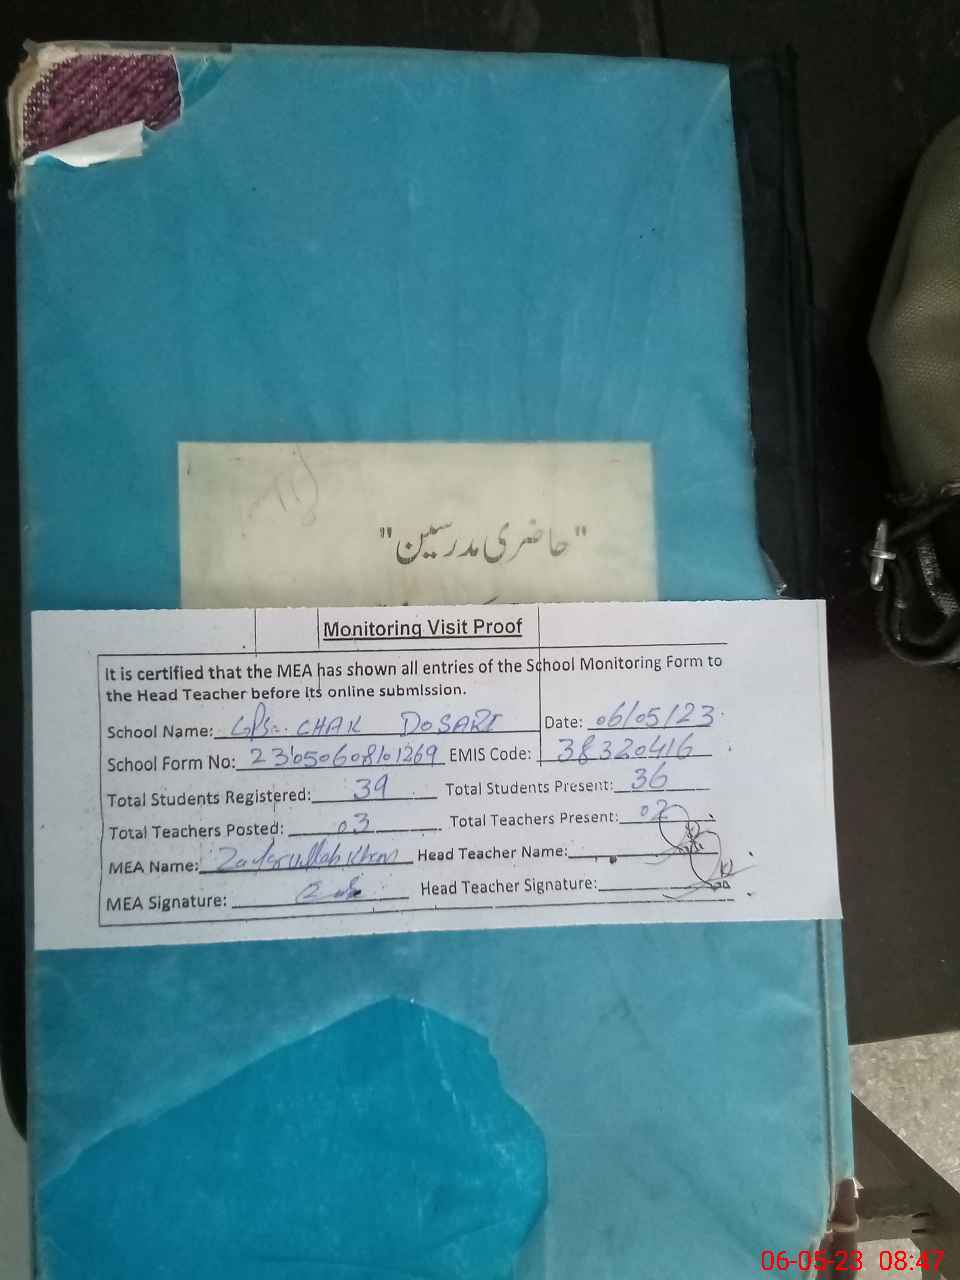 "حاضری مدرسین"
Monitoring Visit Proof
It is certified that the MEA has shown all entries of the School Monitoring Form to
the Head Teacher before its online submission.
School Name: GPS CHAK DOSARI Date: 06/05/23
School Form No: EMIS Code: 38320416
Total Students Registered: 39 Total Students Present: 36
Total Teachers Posted: 03 Total Teachers Present: 02
MEA Name: Zafarullah Khan Head Teacher Name:
MEA Signature: Head Teacher Signature:
06-05-23 08:47